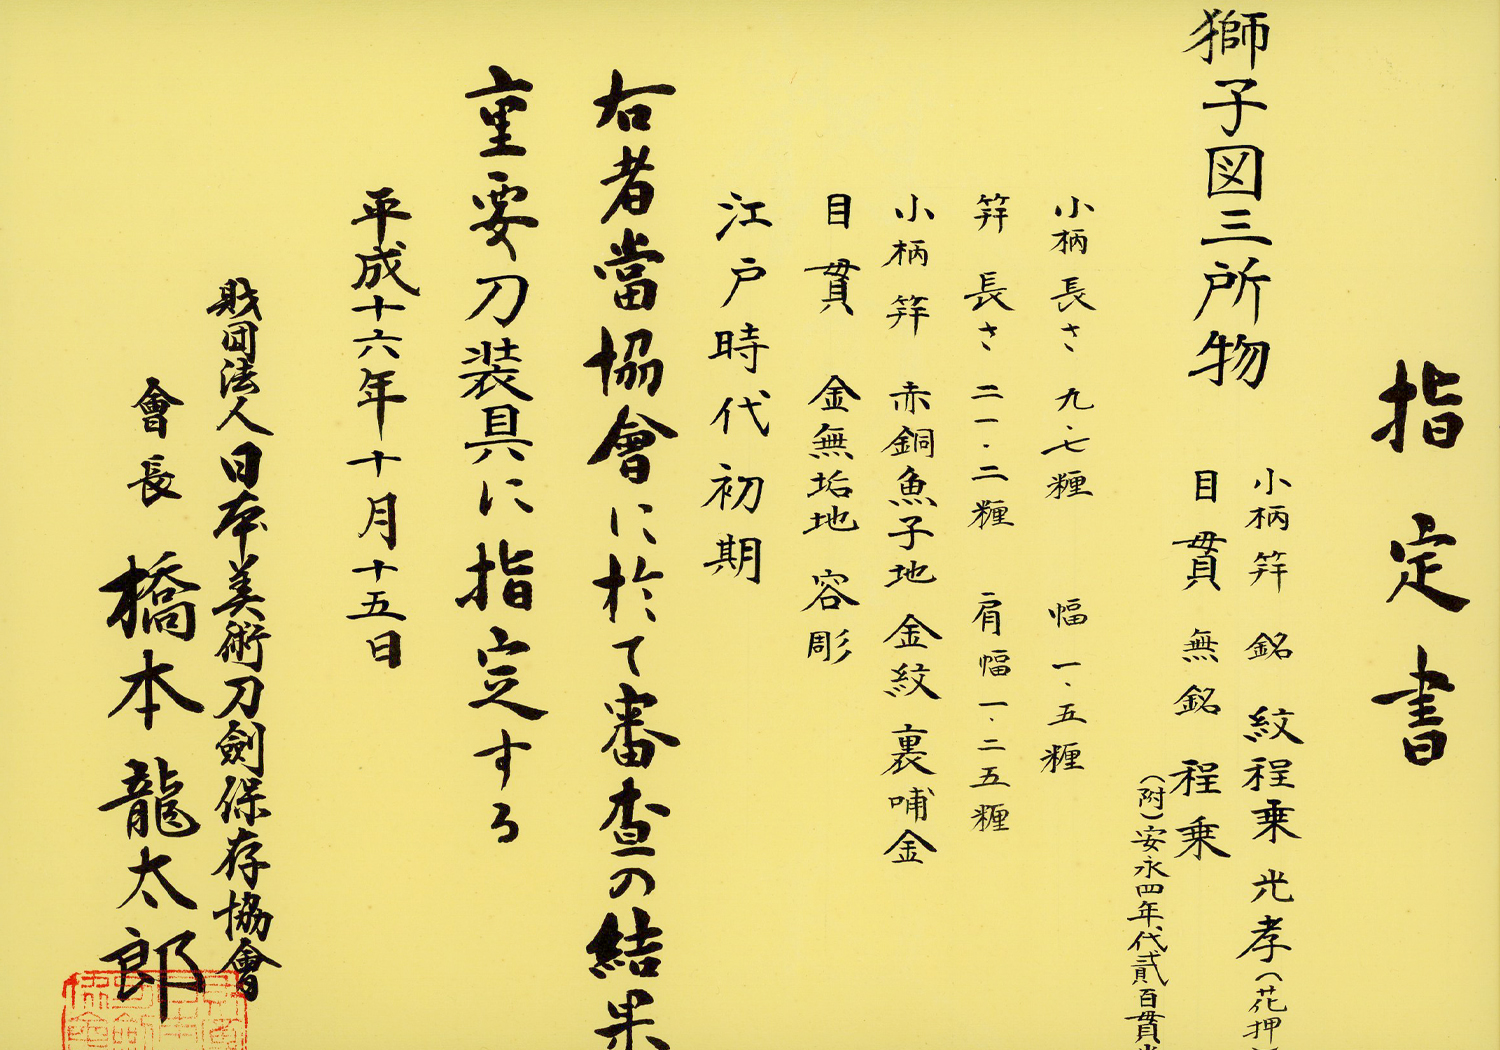 指定書
獅子図三所物
小柄笄 銘 紋程乗 光孝(花押
目貫 無銘 程乗
(附)安永四年、代貳百貫
小柄長さ 九・七糎 幅 一・五糎
笄 長さ 二一・二糎 肩幅 一・二五糎
小柄笄 赤銅魚子地 金紋 裏哺金
目貫 金無垢地 容彫
江戸時代初期
右者當協會に於て審査の結果
重要刀装具に指定する
平成十六年十月十五日
財団法人日本美術刀劍保存協會
會長 橋本龍太郎